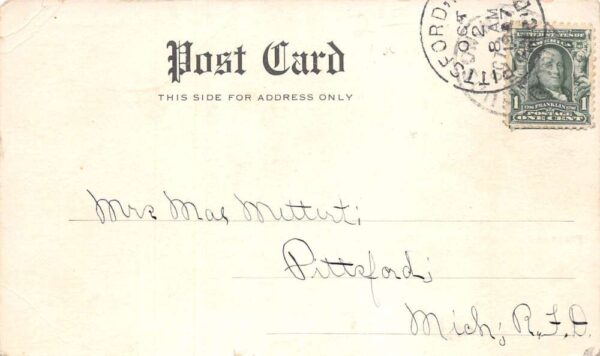 Post Card
THIS SIDE FOR ADDRESS ONLY
PITTSFORD,
8 AM
UNITED STATES OF
AMERICA
1 FRANKLIN 1
POSTAGE
ONE CENT
Mrs Mae
Pittsford,
Mich; R.F.D.